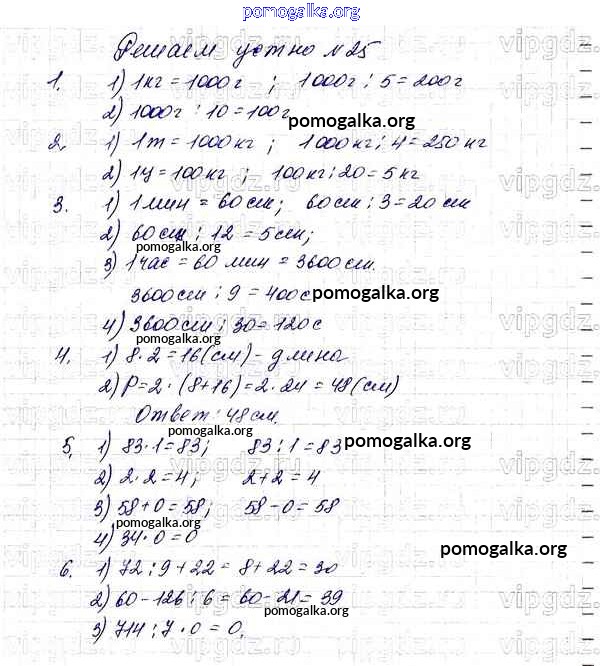 pomogalka.org
Решаем устно №25
1. 1) 1кг = 1000г ; 1000г : 5 = 200г
2) 1000г : 10 = 100г
pomogalka.org
2. 1) 1т = 1000кг ; 1000кг : 4 = 250кг
2) 1ц = 100кг ; 100кг : 20 = 5кг
3. 1) 1мин = 60см ; 60см : 3 = 20см
2) 60см : 12 = 5см;
pomogalka.org
3) 1час = 60мин = 3600см.
3600см : 9 = 400с
pomogalka.org
4) 3600см : 30 = 120с
pomogalka.org
4. 1) 8·2=16(см) – длина
2) P=2·(8+16)=2·24=48(см)
Ответ: 48см.
5. 1) 83·1=83; 83:1=83
pomogalka.org
2) 2·2=4; 2+2=4
3) 58+0=58; 58-0=58
pomogalka.org
4) 34·0=0
pomogalka.org
6. 1) 72:9+22=8+22=30
2) 60-126:6=60-21=39
pomogalka.org
3) 714:7·0=0.